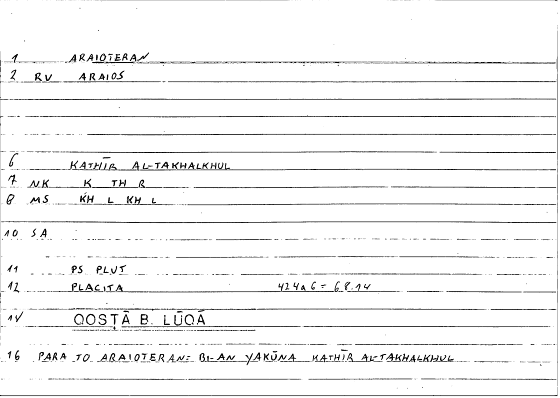 1 ARAIOTERAN
2 RV ARAIOS
6 KATHĪR AL-TAKHALKHUL
7 NK K TH R
8 MS KH L KH L
10 SA
11 PS PLUT
12 PLACITA 424a6 = 68.14
14 QOSṬĀ B. LŪQĀ
16 PARA TO ARAIOTERAN= BI-AN YAKŪNA KATHĪR AL-TAKHALKHUL